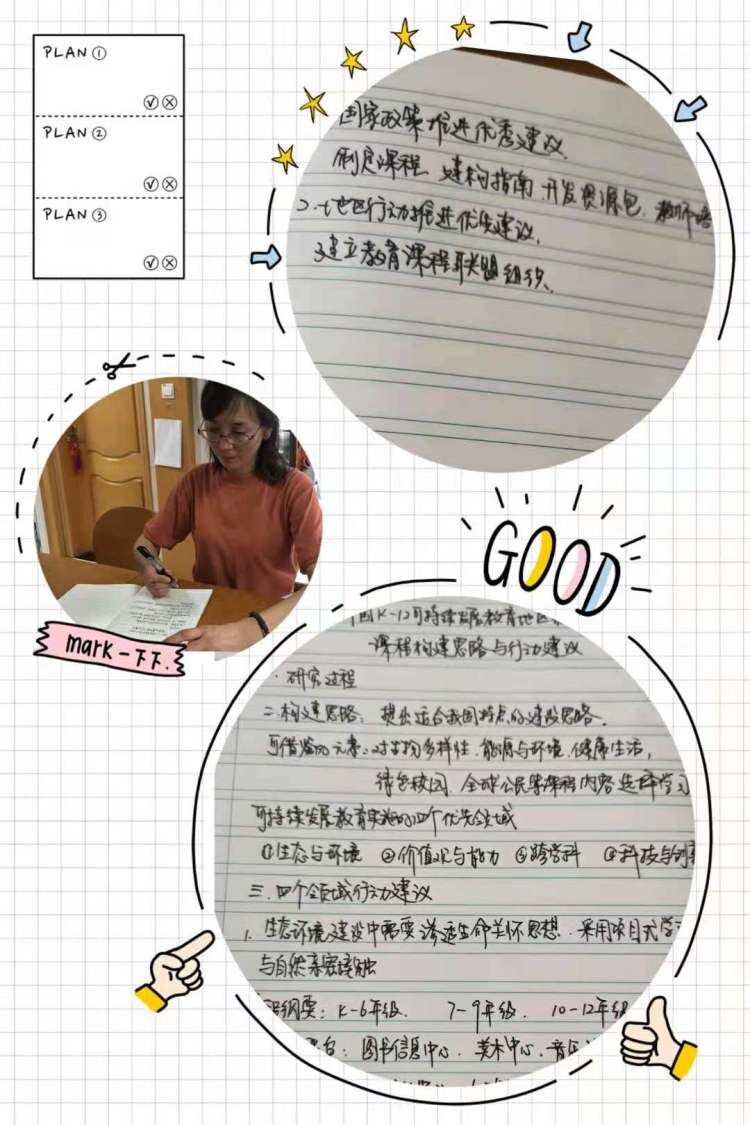 PLAN ①
PLAN ②
PLAN ③
国家政策推进优秀建议
制定课程 建构指南 开发资源包 教师
2. 地区行动推进优先建议.
建立教育课程联盟组织.
mark一下下.
GOOD
K-12可持续发展教育地区
课程构建思路与行动建议
研究过程
二.构建思路: 提出适合我国特点的建设思路.
可借鉴的元素: 对生物多样性、能源与环境、健康生活,
绿色校园、全球公民等课程内容选择学习
可持续发展教育实施的四个优先领域
①生态与环境 ②价值观与能力 ③跨学科 ④科技与创新
三.四个领域行动建议
1. 生态环境建设中需要渗透生命关怀思想. 采用项目式学
与自然亲密接触
纲要: K-6年级. 7-9年级. 10-12年级
台: 图书信息中心. 美术中心. 音乐